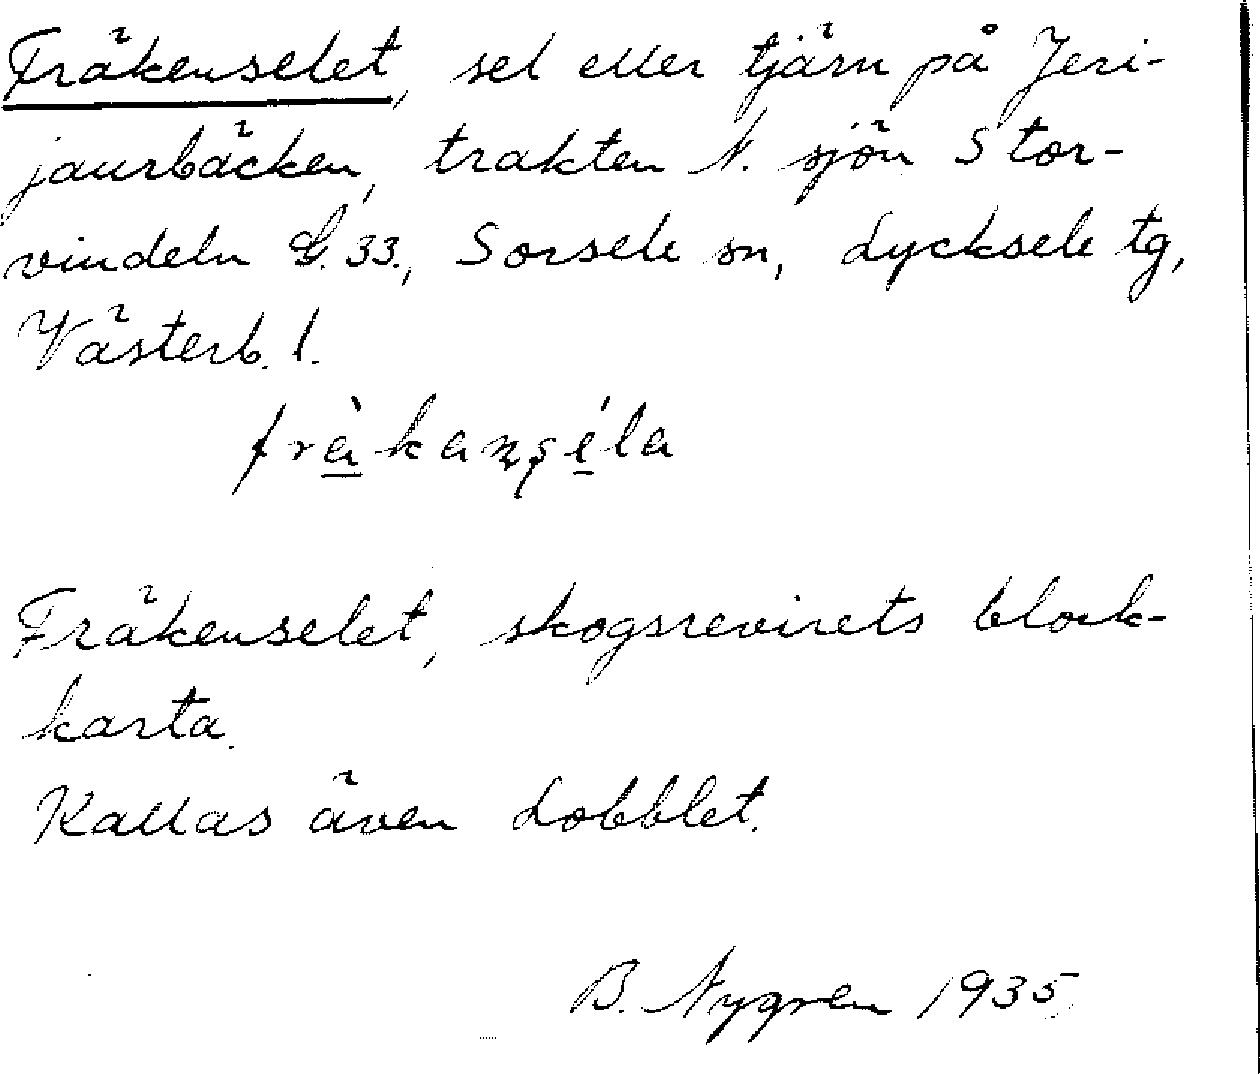 Fräkenselet, sel eller tjärn på Jeri-
jaurbäcken, trakten N. sjön Stor-
vindeln G. 33., Sorsele sn, Lycksele tg,
Västerb. l.
fràkanséla
Fräkenselet, skogsrevirets block-
karta.
Kallas även Lobblet.
B. Nygren 1935